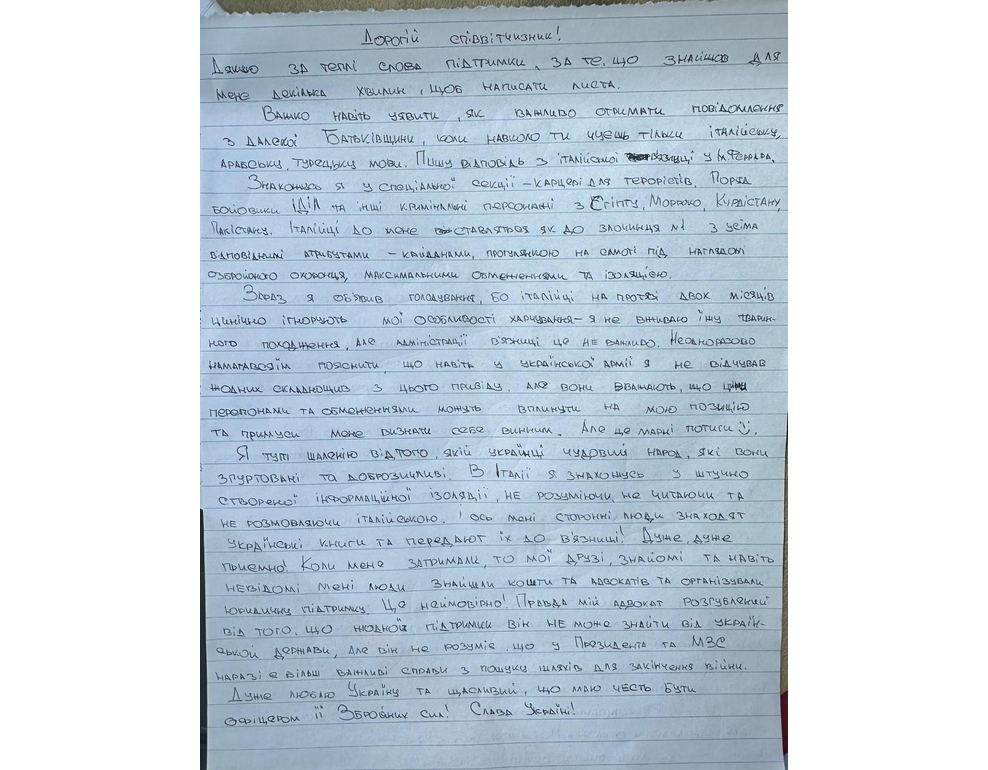 Дорогій співвітчизник!
Дякую за теплі слова підтримки, за те, що знайшов для
мене декілька хвилин, щоб написати листа.
Важко навіть уявити, як важливо отримати повідомлення
з далекої Батьківщини, коли навколо ти чуєш тільки італійську,
арабську, турецьку мови. Пишу відповідь з італійської в'язниці у м. Феррара.
Знаходжусь я у спеціальної секції – карцері для терористів. Поряд
бойовики ІДІЛ та інші кримінальні персонажі з Єгіпту, Морроко, Курдістану,
Пакістану. Італійці до мене ставляться як до злочинця №1 з усіма
відповідними атрибутами – кайданами, прогулянкою на самоті під наглядом
озбройоного охоронця, максимальними обмеженнями та ізоляцією.
Зараз я об'явив голодування, бо італійці на протязі двох місяців
цинічно ігнорують мої особливості харчування – я не вживаю їжу тварин-
ного походження, але адміністрації в'язниці це не важливо. Неодноразово
намагався їм пояснити, що навіть у української армії я не відчував
жодних складнощив з цього привіду, але вони вважають, що цими
перепонами та обмеженнями можуть вплинути на мою позицію
та примуси мене визнати себе винним. Але це марні потиги
Я тут шаленію від того, якій українці чудовий народ, які вони
згуртовані та доброзичливі. В Італії я знахожусь у штучно
створеної інформаційної ізоляції, не розуміючи, не читаючи та
не розмовляючи італійською. І ось мені сторонні люди знаходят
українські книги та передают їх до в'язниці! Дуже, дуже
приємно! Коли мене затримали, то мої друзі, знайомі та навіть
невідомі мені люди знайшли кошти та адвокатів та організували
юридичну підтримку. Це неймовірно! Правда мій адвокат розгублений
від того, що жодной підтримки він не може знайти від україн-
ської держави, але він не розуміє, що у Президента та МЗС
наразі є більш важливі справи з пошуку шляхів для закінчення війни.
Дуже люблю Україну та щасливий, що маю честь бути
офіцером її Збройних сил! Слава Україні!